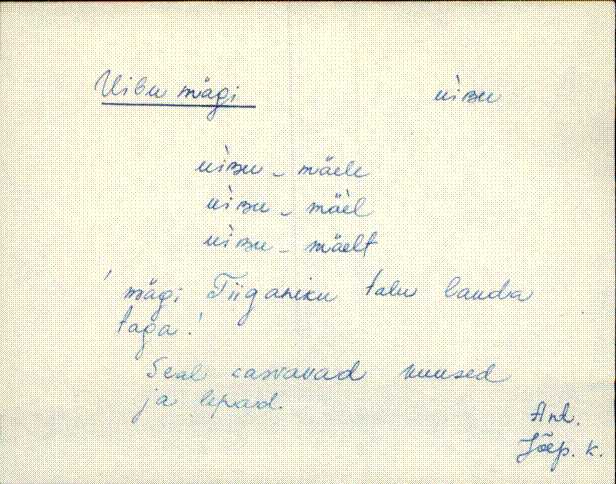 Uibu mägi ùiʙu
ùiʙu - mäele
ùiʙu - mäèl
ùiʙu - mäelt
' mägi Tiiganiku talu lauda
taga.'
Seal kasvavad kuused
ja lepad.
Ant.
Jõep. k.